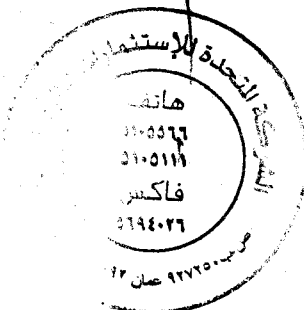 الشركة المتحدة للإستثمارات
هاتف
٥١٠٥٥٦٦
٥١٠٥١١١
فاكس
٥٦٩٤٠٢٦
ص.ب ٩٢٧٢٥٠ عمان